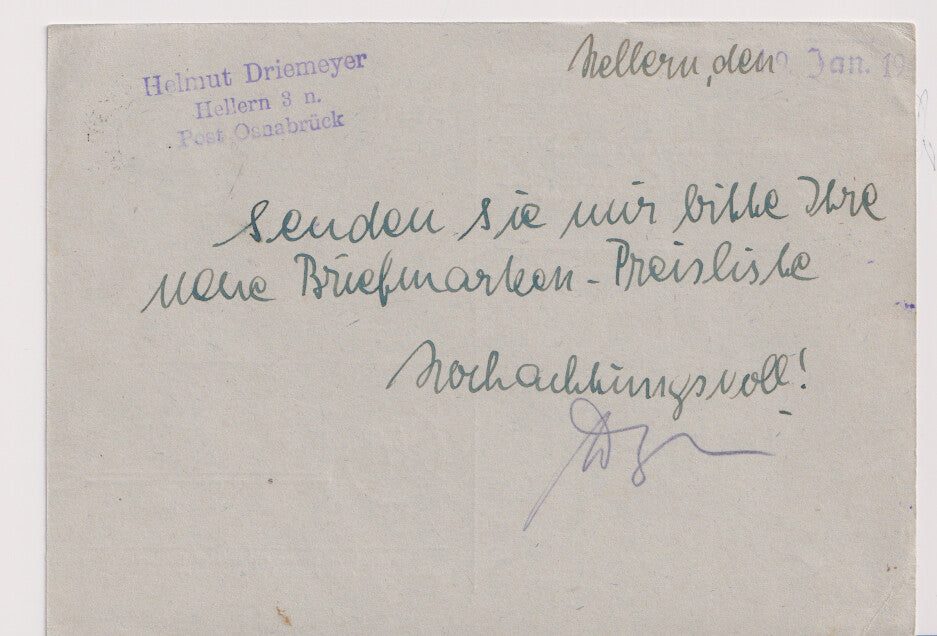 Helmut Driemeyer
Hellern 3 n.
Post Osnabrück
Hellern, den 9. Jan. 19
Senden sie mir bitte Ihre
neue Briefmarken-Preisliste
Hochachtungsvoll!